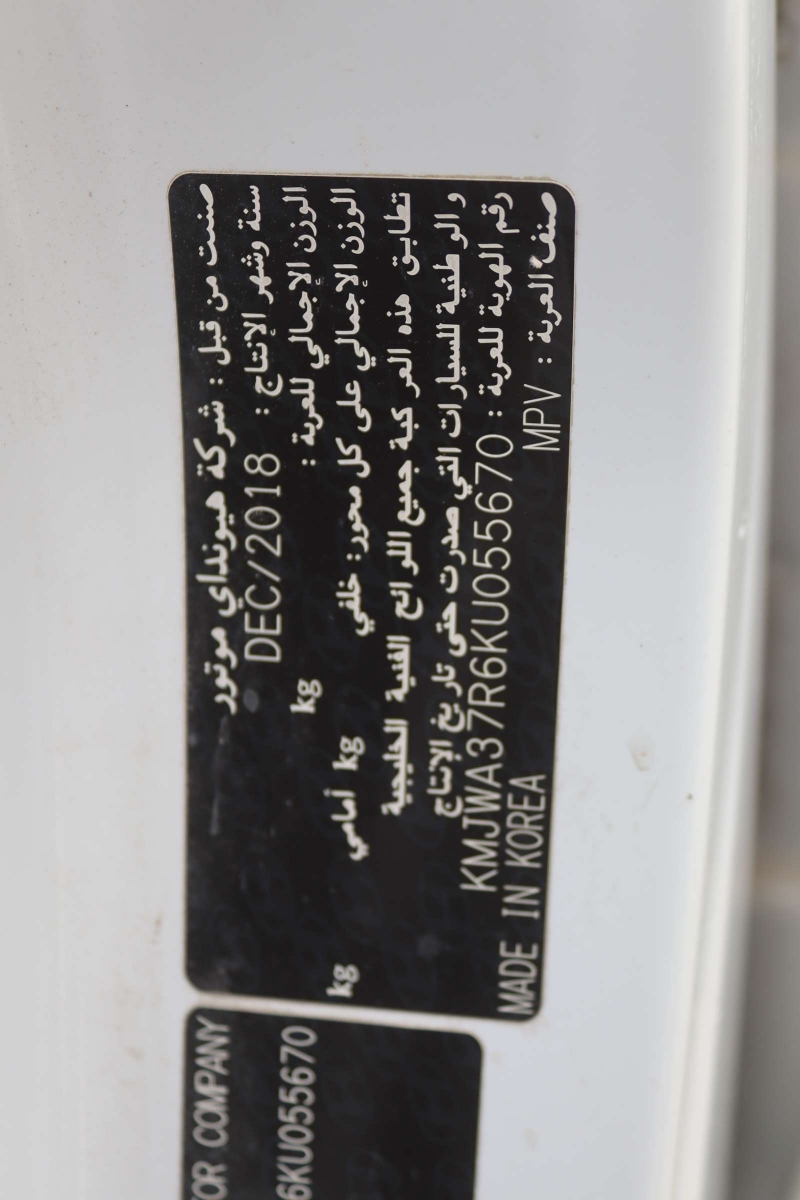 صنعت من قبل : شركة هيونداي موتور
سنة وشهر الإنتاج : DEC/2018
الوزن الإجمالي للعربة : kg
الوزن الإجمالي على كل محور: خلفي kg أمامي kg
تطابق هذه العر كبة جميع اللرائح الفنية الخليجية
و الو طنية للسيارات التي صدرت حتى تاريخ الإنتاج
رقم الهوية للعربة : KMJWA37R6KU055670
صنف العربة : MPV
MADE IN KOREA
TOR COMPANY
6KU055670